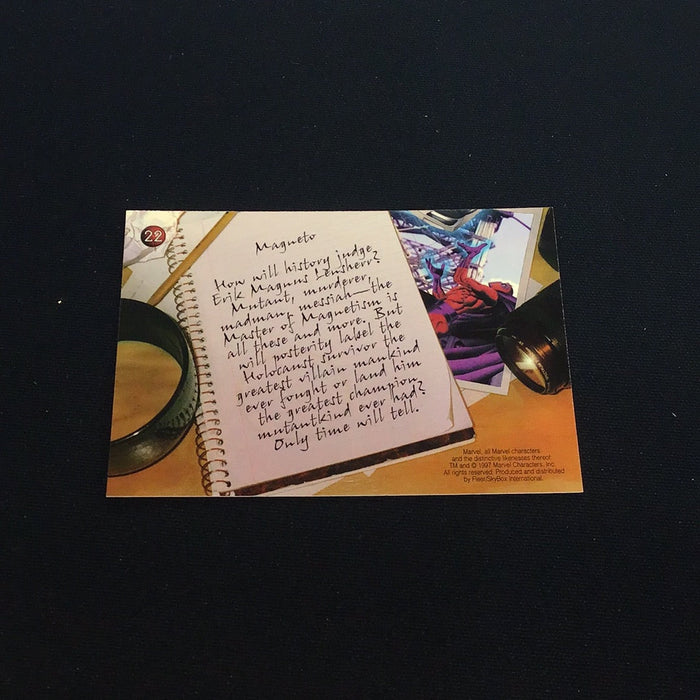 22
Magneto
How will history judge
Erik Magnus Lensherr?
Mutant, murderer,
madman, messiah—the
Master of Magnetism is
all these and more. But
will posterity label the
Holocaust survivor the
greatest villain mankind
ever fought or laud him
the greatest champion
mutantkind ever had?
Only time will tell.
Marvel, all Marvel characters
and the distinctive likenesses thereof
TM and © 1997 Marvel Characters, Inc.
All rights reserved. Produced and distributed
by Fleer/SkyBox International.